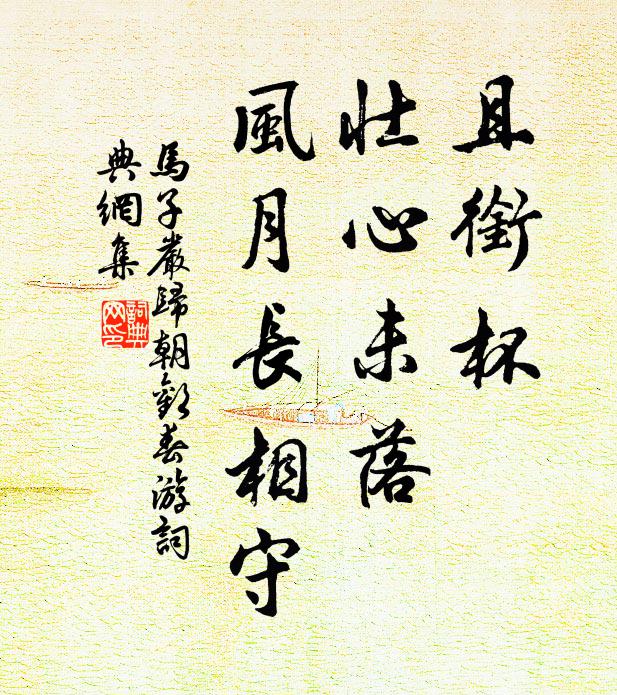 且銜杯
壯心未落
風月長相守
馬子嚴歸朝歡春游詞
典網集
詞典
網印